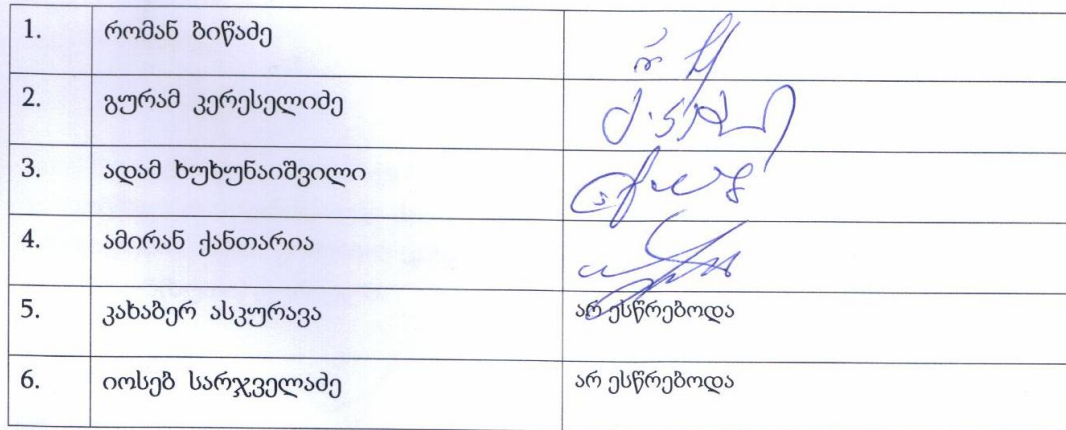 1. რომან ბიწაძე
2. გურამ კერესელიძე
3. ადამ ხუხუნაიშვილი
4. ამირან ქანთარია
5. კახაბერ ასკურავა არ ესწრებოდა
6. იოსებ სარჯველაძე არ ესწრებოდა